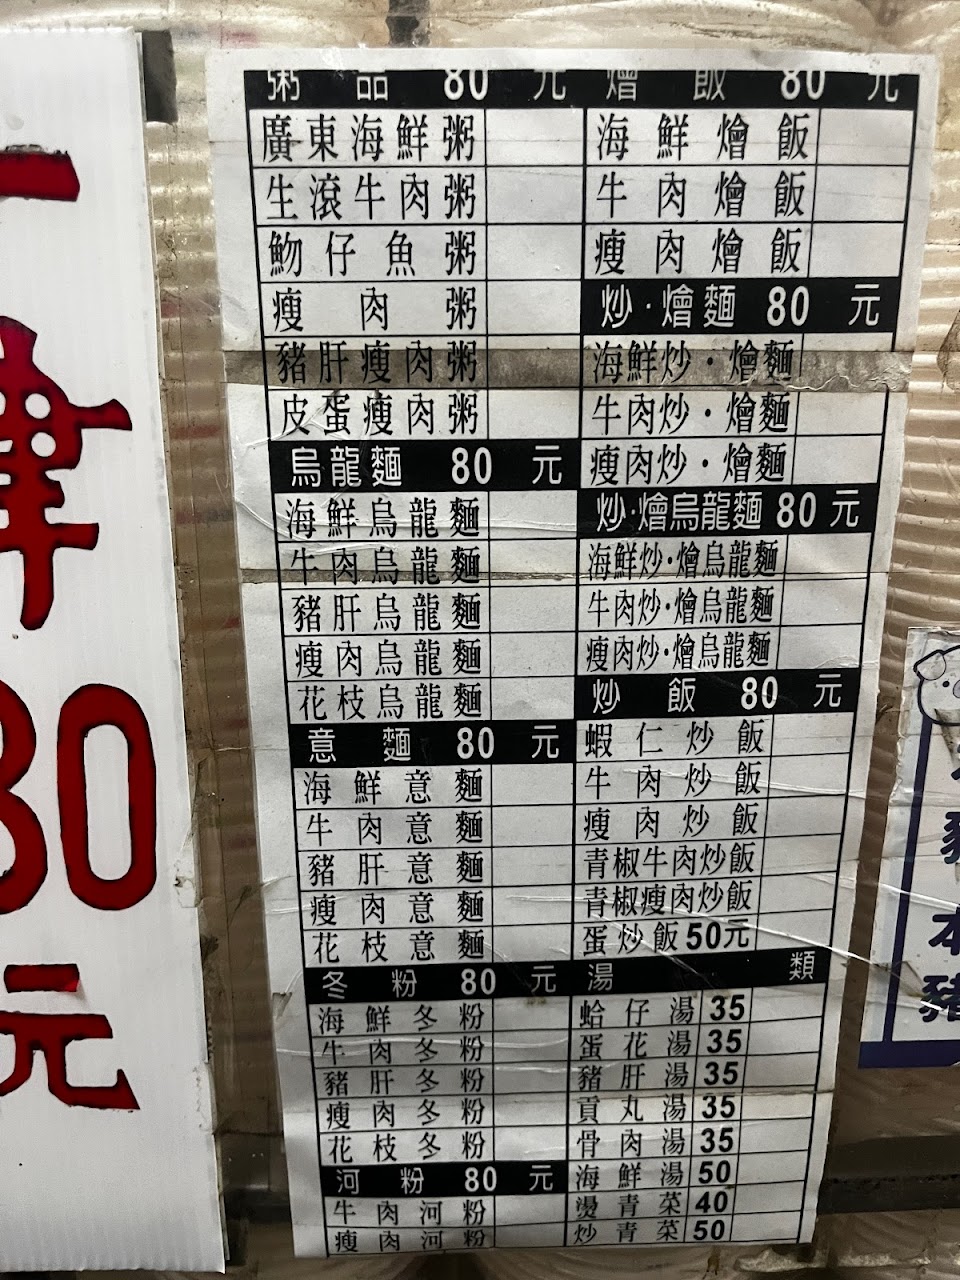 粥品 80元
廣東海鮮粥
生滾牛肉粥
魩仔魚粥
瘦肉粥
豬肝瘦肉粥
皮蛋瘦肉粥
烏龍麵 80元
海鮮烏龍麵
牛肉烏龍麵
豬肝烏龍麵
瘦肉烏龍麵
花枝烏龍麵
意麵 80元
海鮮意麵
牛肉意麵
豬肝意麵
瘦肉意麵
花枝意麵
冬粉 80元
海鮮冬粉
牛肉冬粉
豬肝冬粉
瘦肉冬粉
花枝冬粉
河粉 80元
牛肉河粉
瘦肉河粉
燴飯 80元
海鮮燴飯
牛肉燴飯
瘦肉燴飯
炒·燴麵 80元
海鮮炒·燴麵
牛肉炒·燴麵
瘦肉炒·燴麵
炒·燴烏龍麵 80元
海鮮炒·燴烏龍麵
牛肉炒·燴烏龍麵
瘦肉炒·燴烏龍麵
炒飯 80元
蝦仁炒飯
牛肉炒飯
瘦肉炒飯
青椒牛肉炒飯
青椒瘦肉炒飯
蛋炒飯50元
湯類
蛤仔湯 35
蛋花湯 35
豬肝湯 35
貢丸湯 35
骨肉湯 35
海鮮湯 50
燙青菜 40
炒青菜 50
80
元
本
豬